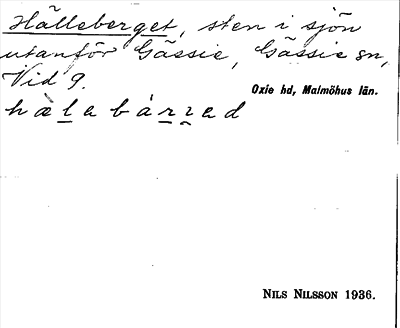 Hälleberget, sten i sjön
utanför Gässie, Gässie sn,
Vid 9.
Oxie hd, Malmöhus län.
hælabárred
NILS NILSSON 1936.